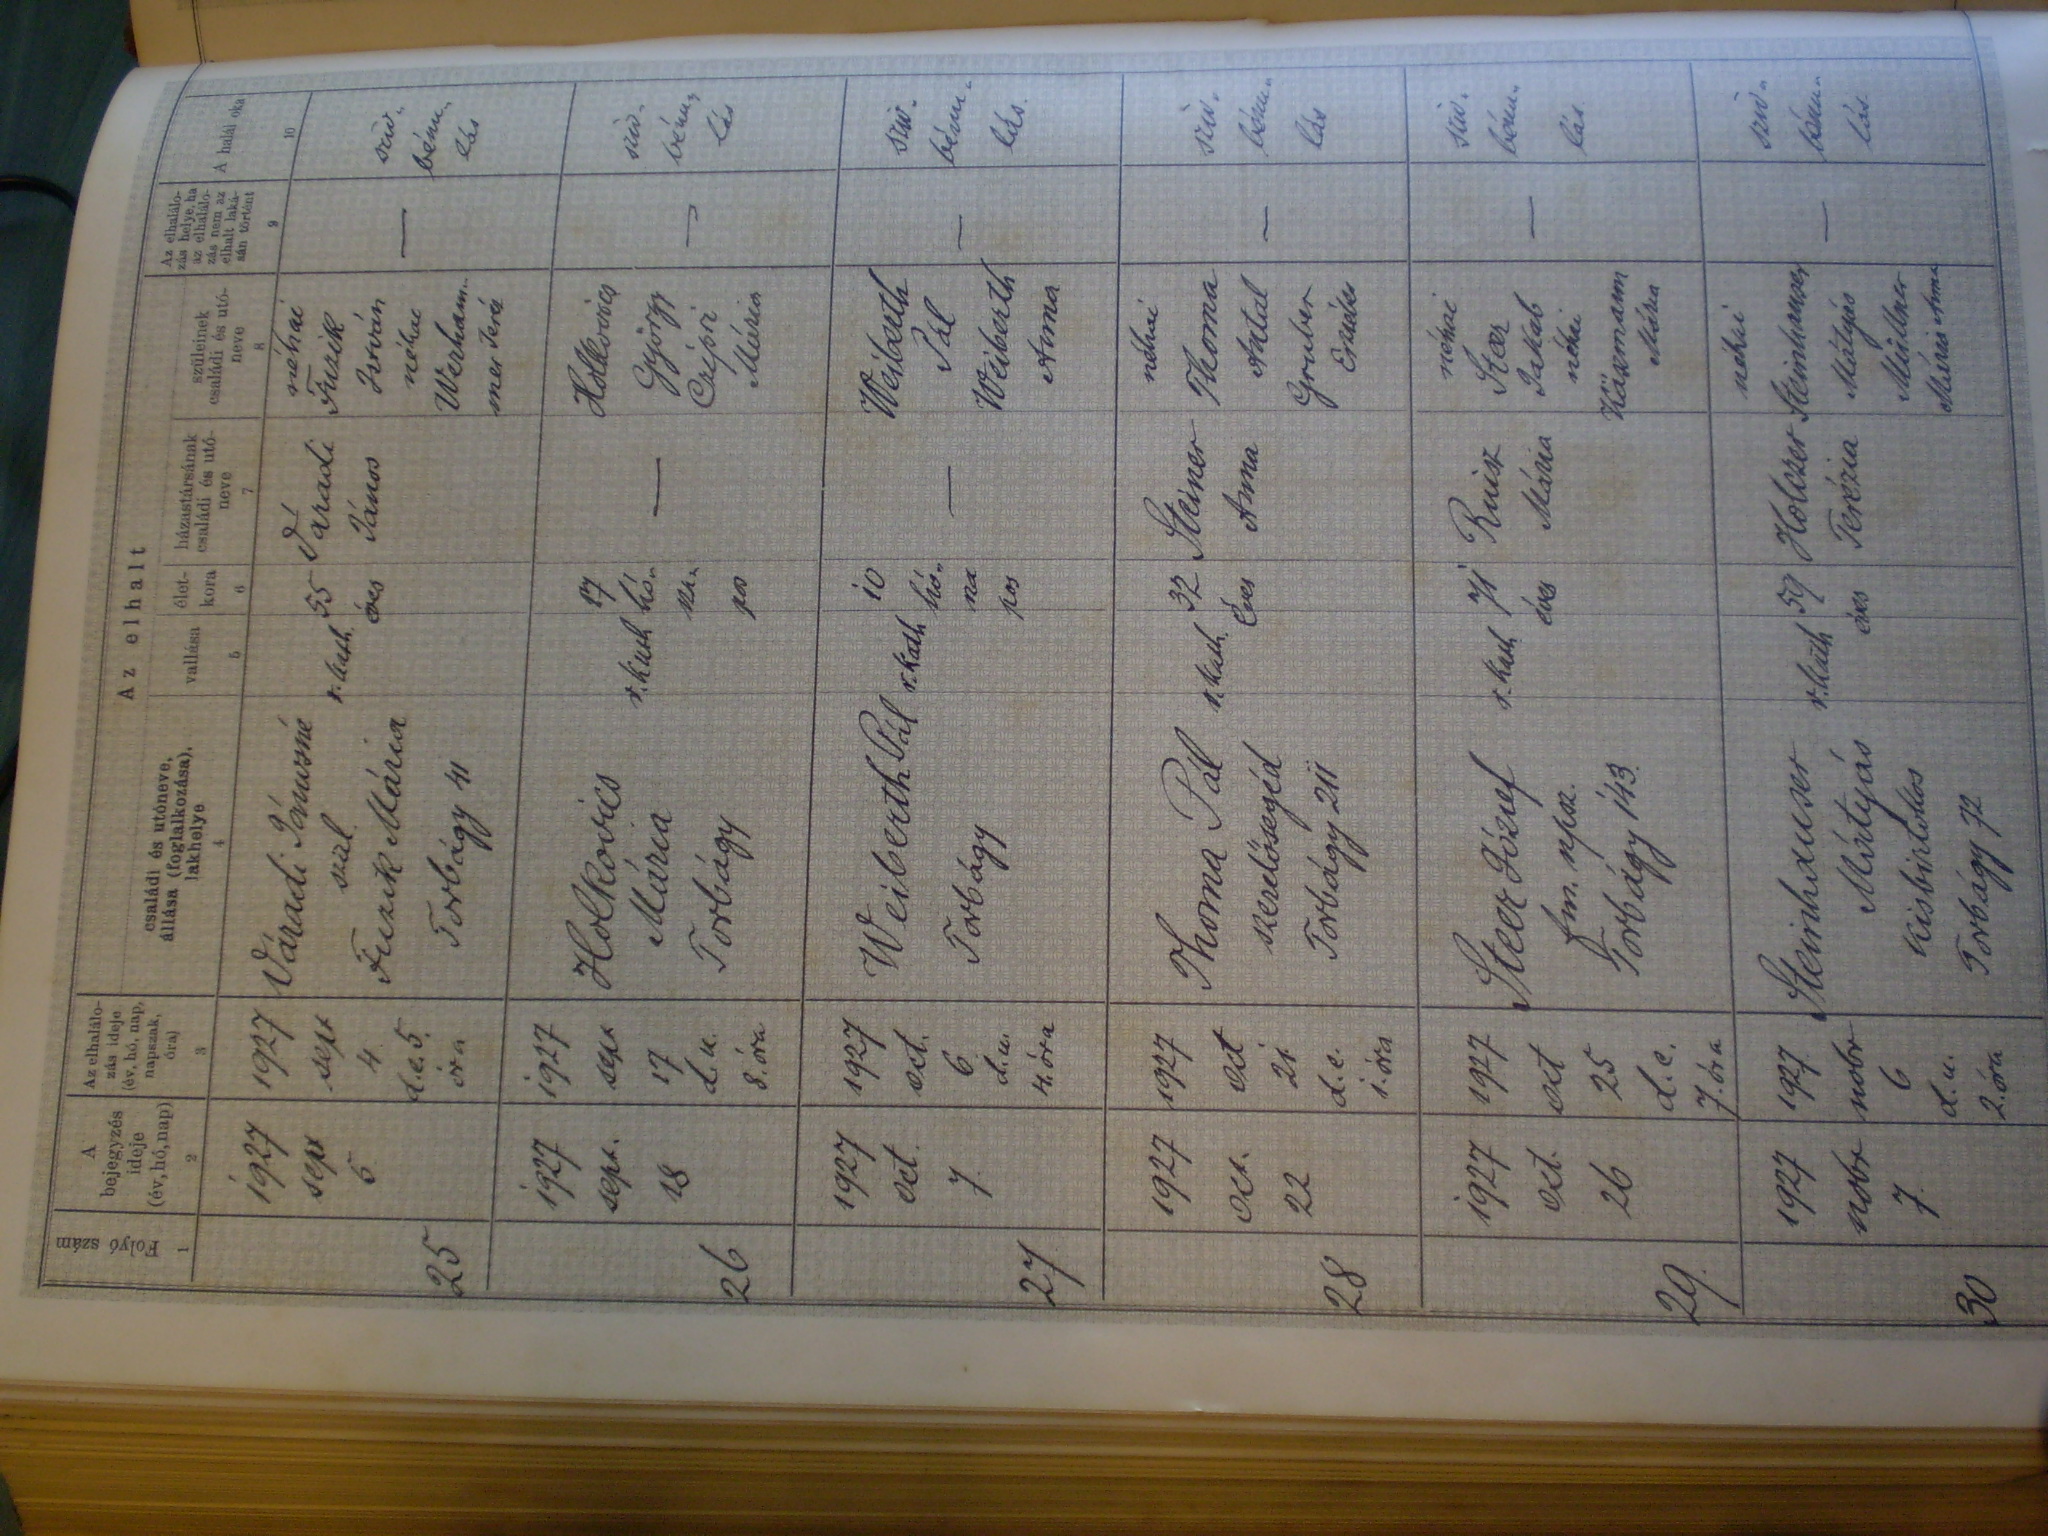 Folyó szám
A bejegyzés ideje (év, hó, nap)
Az elhalt
Az elhalálozás ideje (év, hó, nap, napszak, óra)
családi és utóneve, állása (foglalkozása), lakhelye
vallása
életkora
házastársának családi és utóneve
szüleinek családi és utóneve
Az elhalálozás helye, ha az elhalálozás nem az elhalt lakásán történt
A halál oka
1 2 3 4 5 6 7 8 9 10
25
1927
sept
5
1927
sept
4.
d.e. 5.
óra
Váradi Jánosné
szül.
Fuzik Mária
Torbágy 41
r. kath.
55
éves
Váradi
János
néhai
Fuzik
István
néhai
Werham-
mer Teréz
—
szív-
bénu-
lás
26
1927
sept.
18
1927
sept
17
d.u.
8. óra
Holkovics
Mária
Torbágy
r. kath
17
hó-
na-
pos
—
Holkovics
György
Czépöri
Mária
—
szív-
bénu-
lás
27
1927
oct.
7
1927
oct.
6.
d.u.
4. óra
Weiberth Pál
Torbágy
r. kath
10
hó-
na
pos
—
Weiberth
Pál
Weiberth
Anna
—
szív-
bénu-
lás.
28
1927
oct.
22
1927
oct
21
d.e.
1. óra
Thoma Pál
szerelősegéd
Torbágy 211
r. kath.
32
éves
Steiner
Anna
néhai
Thoma
Antal
Gruber
Erzsébet
—
szív-
bénu-
lás
29.
1927
oct.
26
1927
oct
25
d.e.
7. óra
Steer József
fm. npsz.
Torbágy 143.
r. kath
71
éves
Ruisz
Mária
néhai
Steer
Jakab
néhai
Käszmann
Mária
—
szív-
bénu-
lás.
30
1927
nobr
7.
1927.
nobr
6
d.u.
2. óra
Steinhauser
Mártyás
kisbirtokos
Torbágy 72
r. kath
59
éves
Holczer
Terézia
néhai
Steinhauser
Mátyás
Müllner
Mária Anna
—
szív-
bénu-
lás.